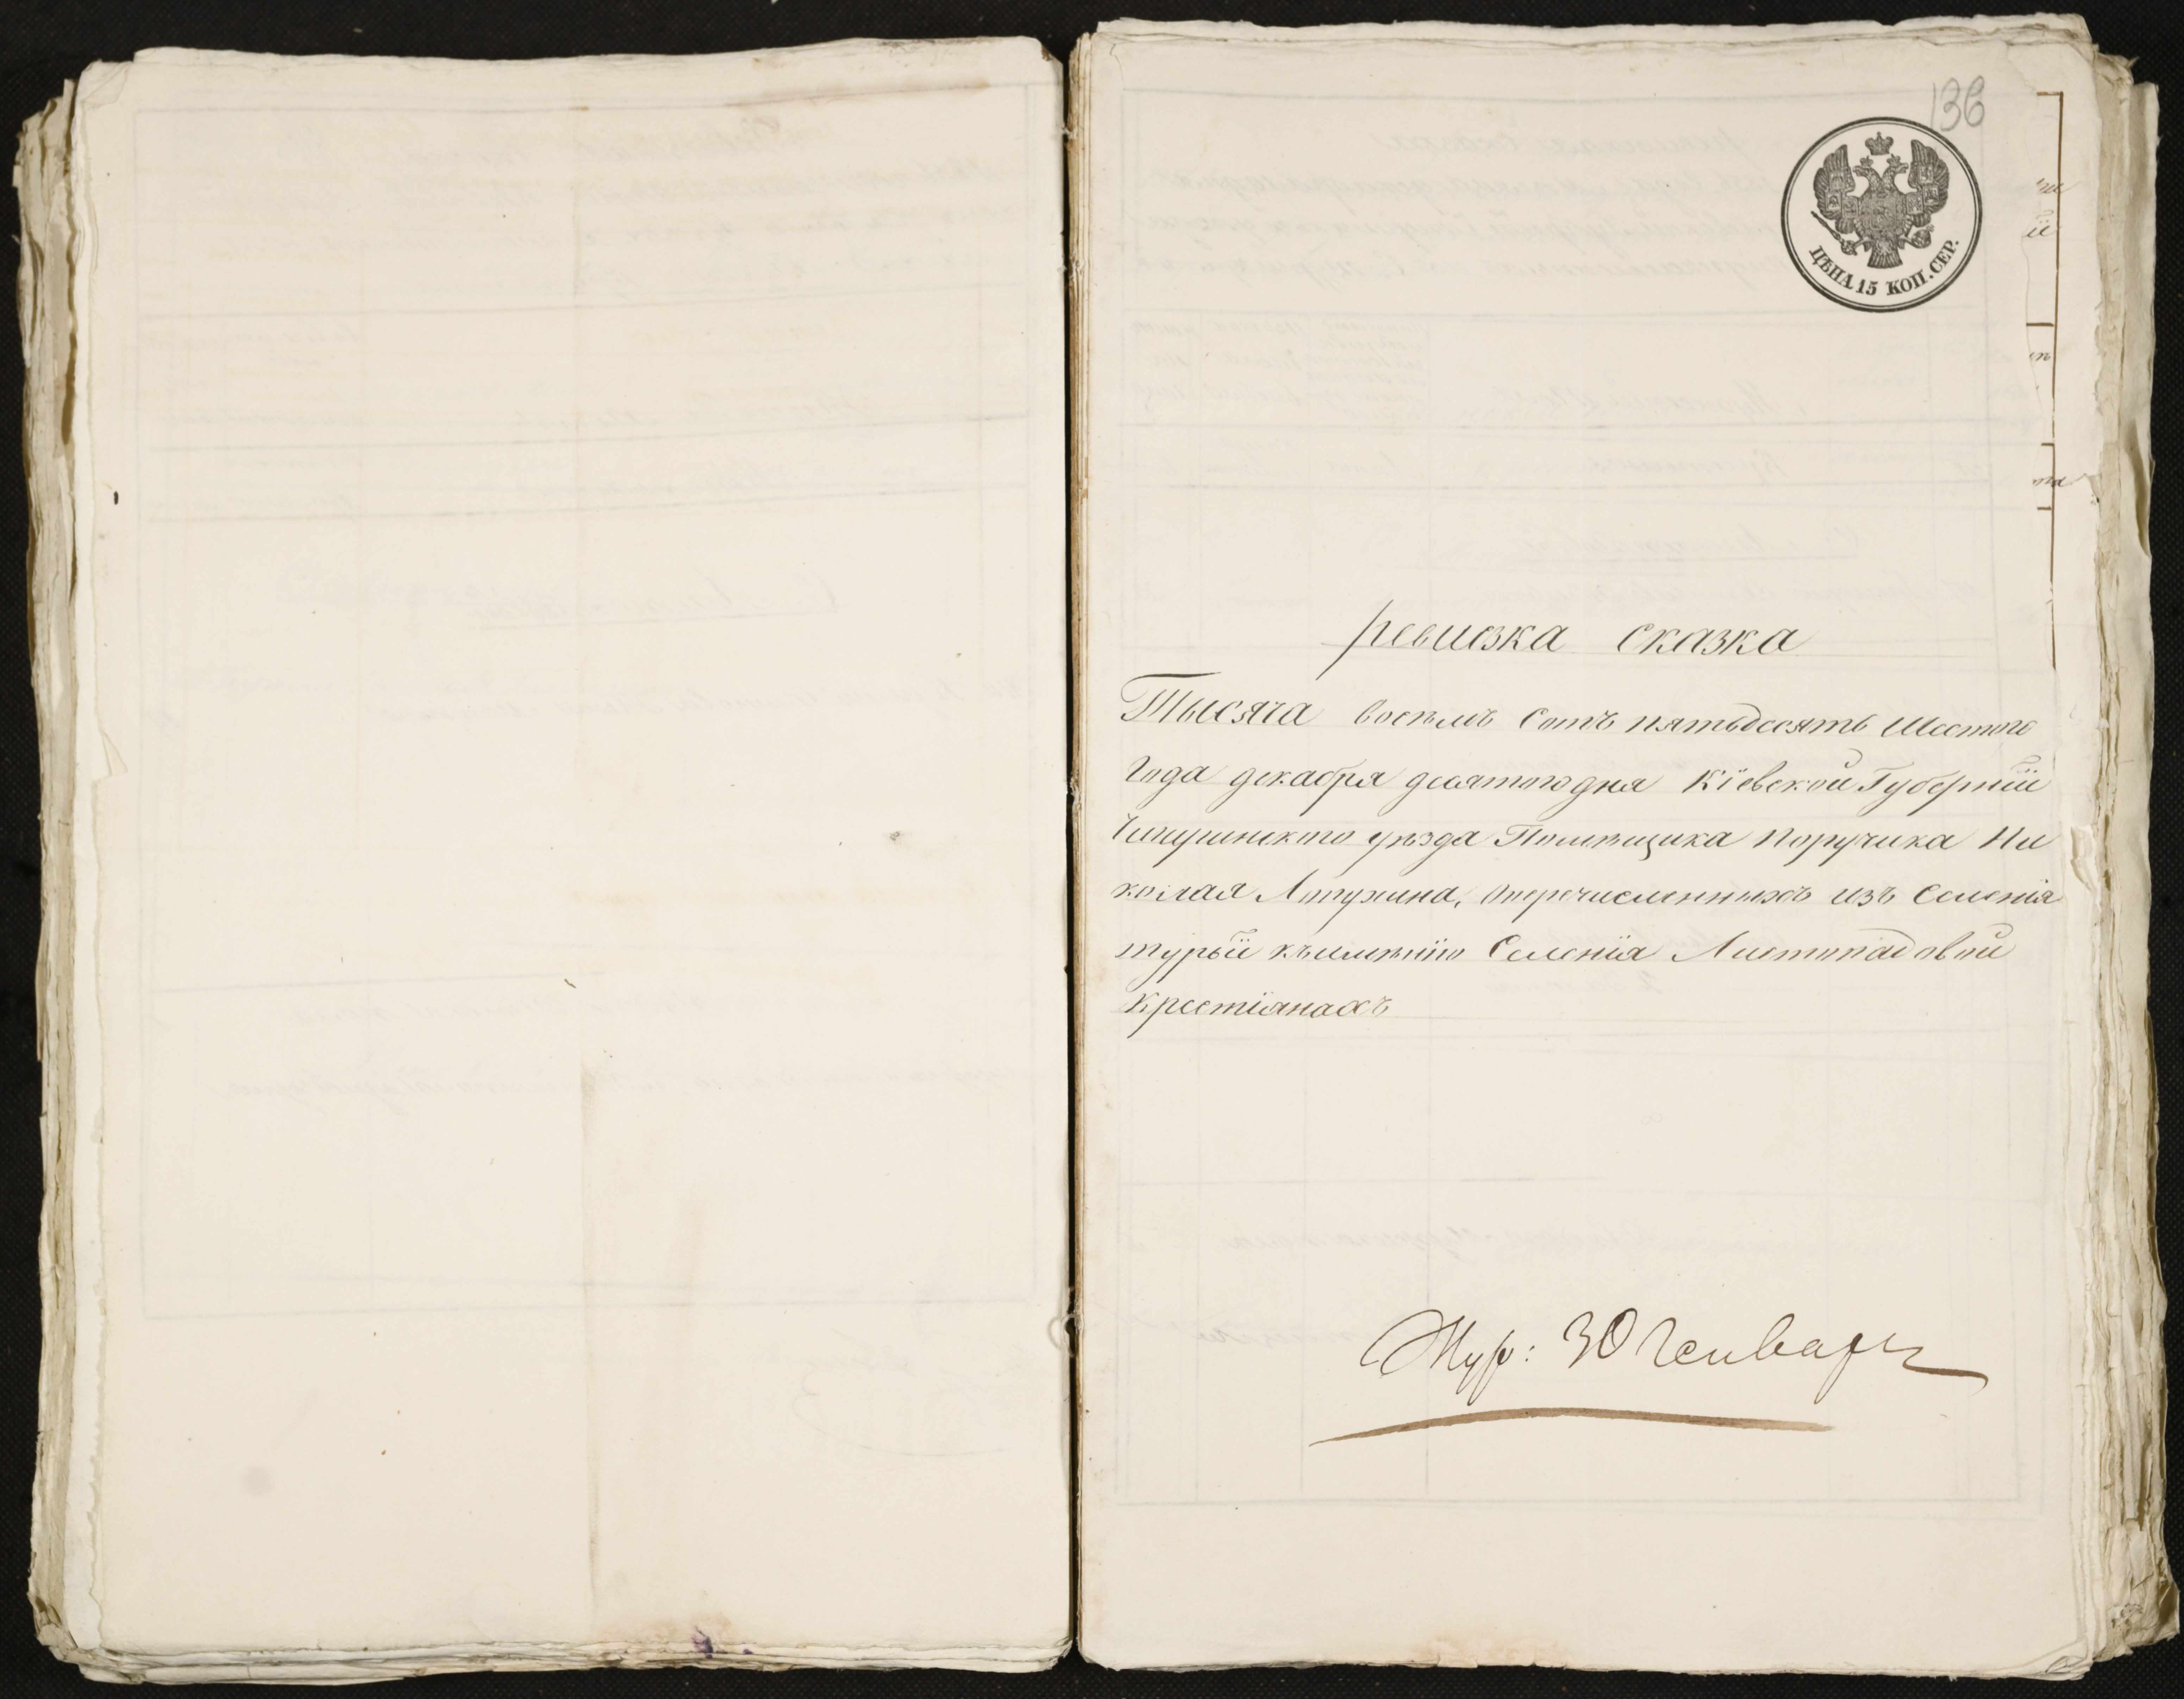 136
ЦѢНА 15 КОП. СЕР.
ревизка сказка
Тысяча восѣмъ сотъ пятьдесять Шестого
Года декабря десятого дня Кіевской Губерніи
Чигиринского уѣзда Помѣщика Поручика Ни
колая Лопухина, Оперечисленныхъ изъ Селенія
турьи къимѣнію Селенія Листопадовой
Крестіянахъ
Жур: 30 Генваря